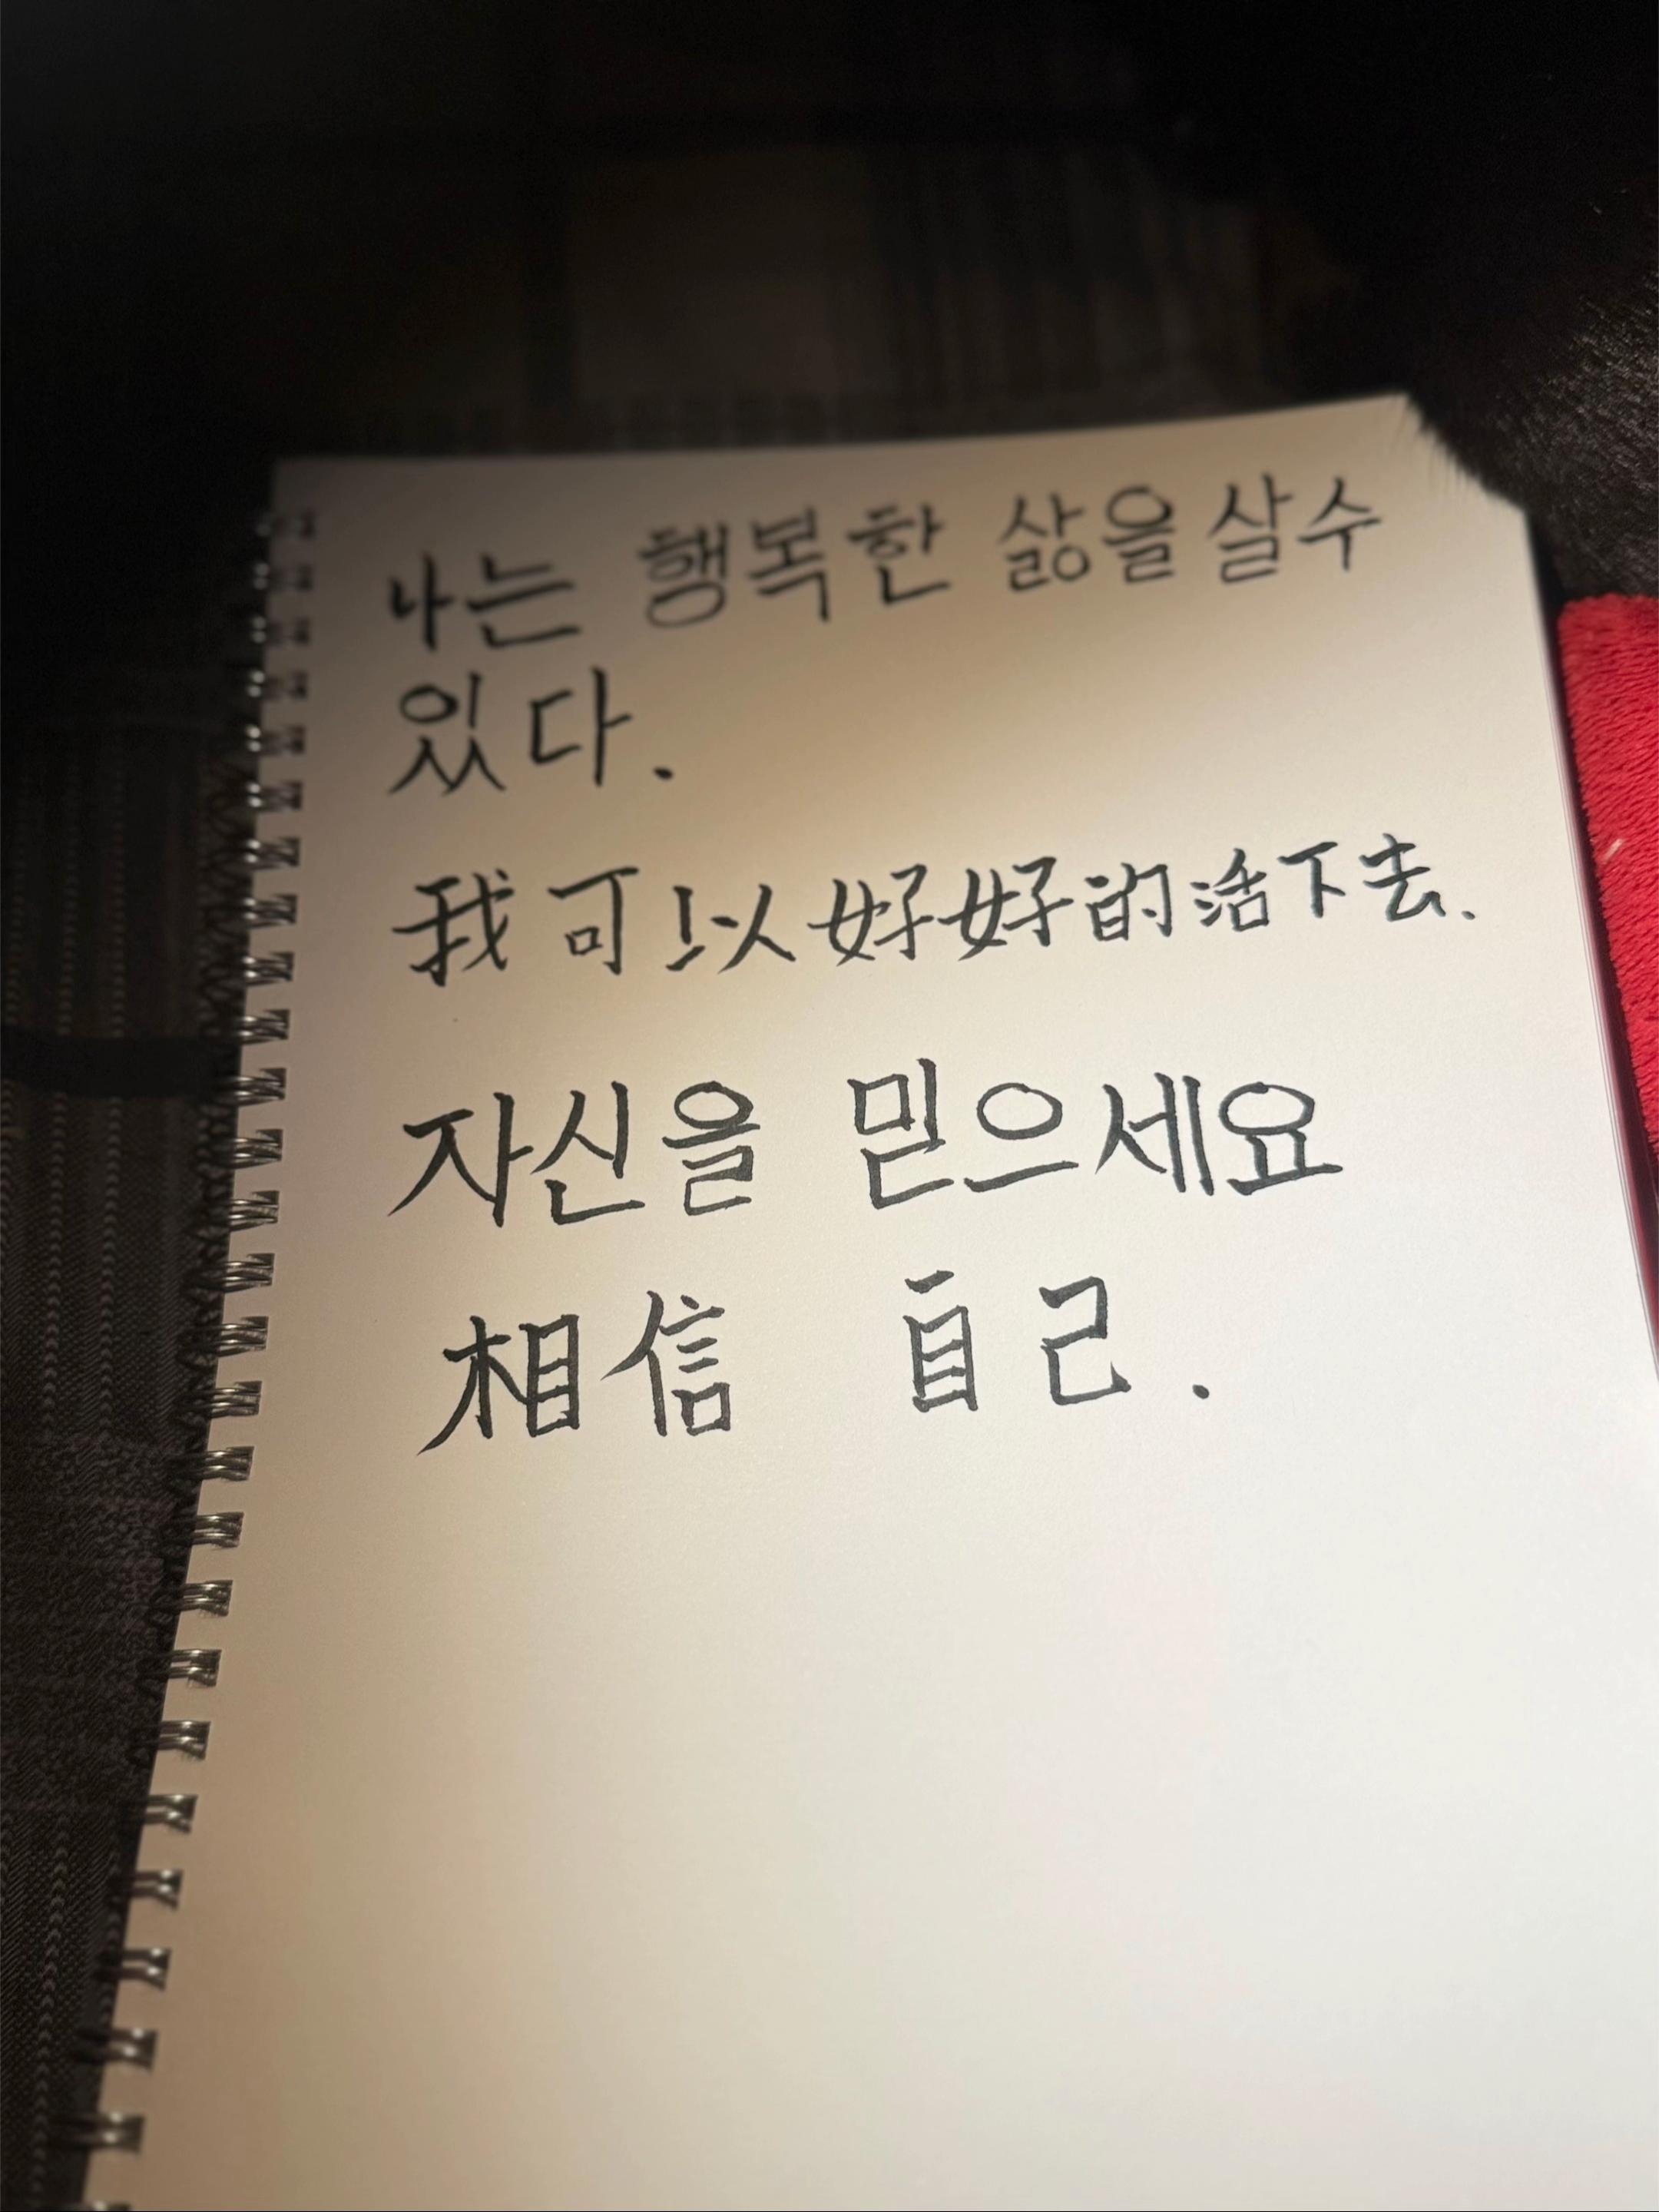 나는 행복한 삶을 살수
있다.
我可以好好的活下去.
자신을 믿으세요
相信 自己.